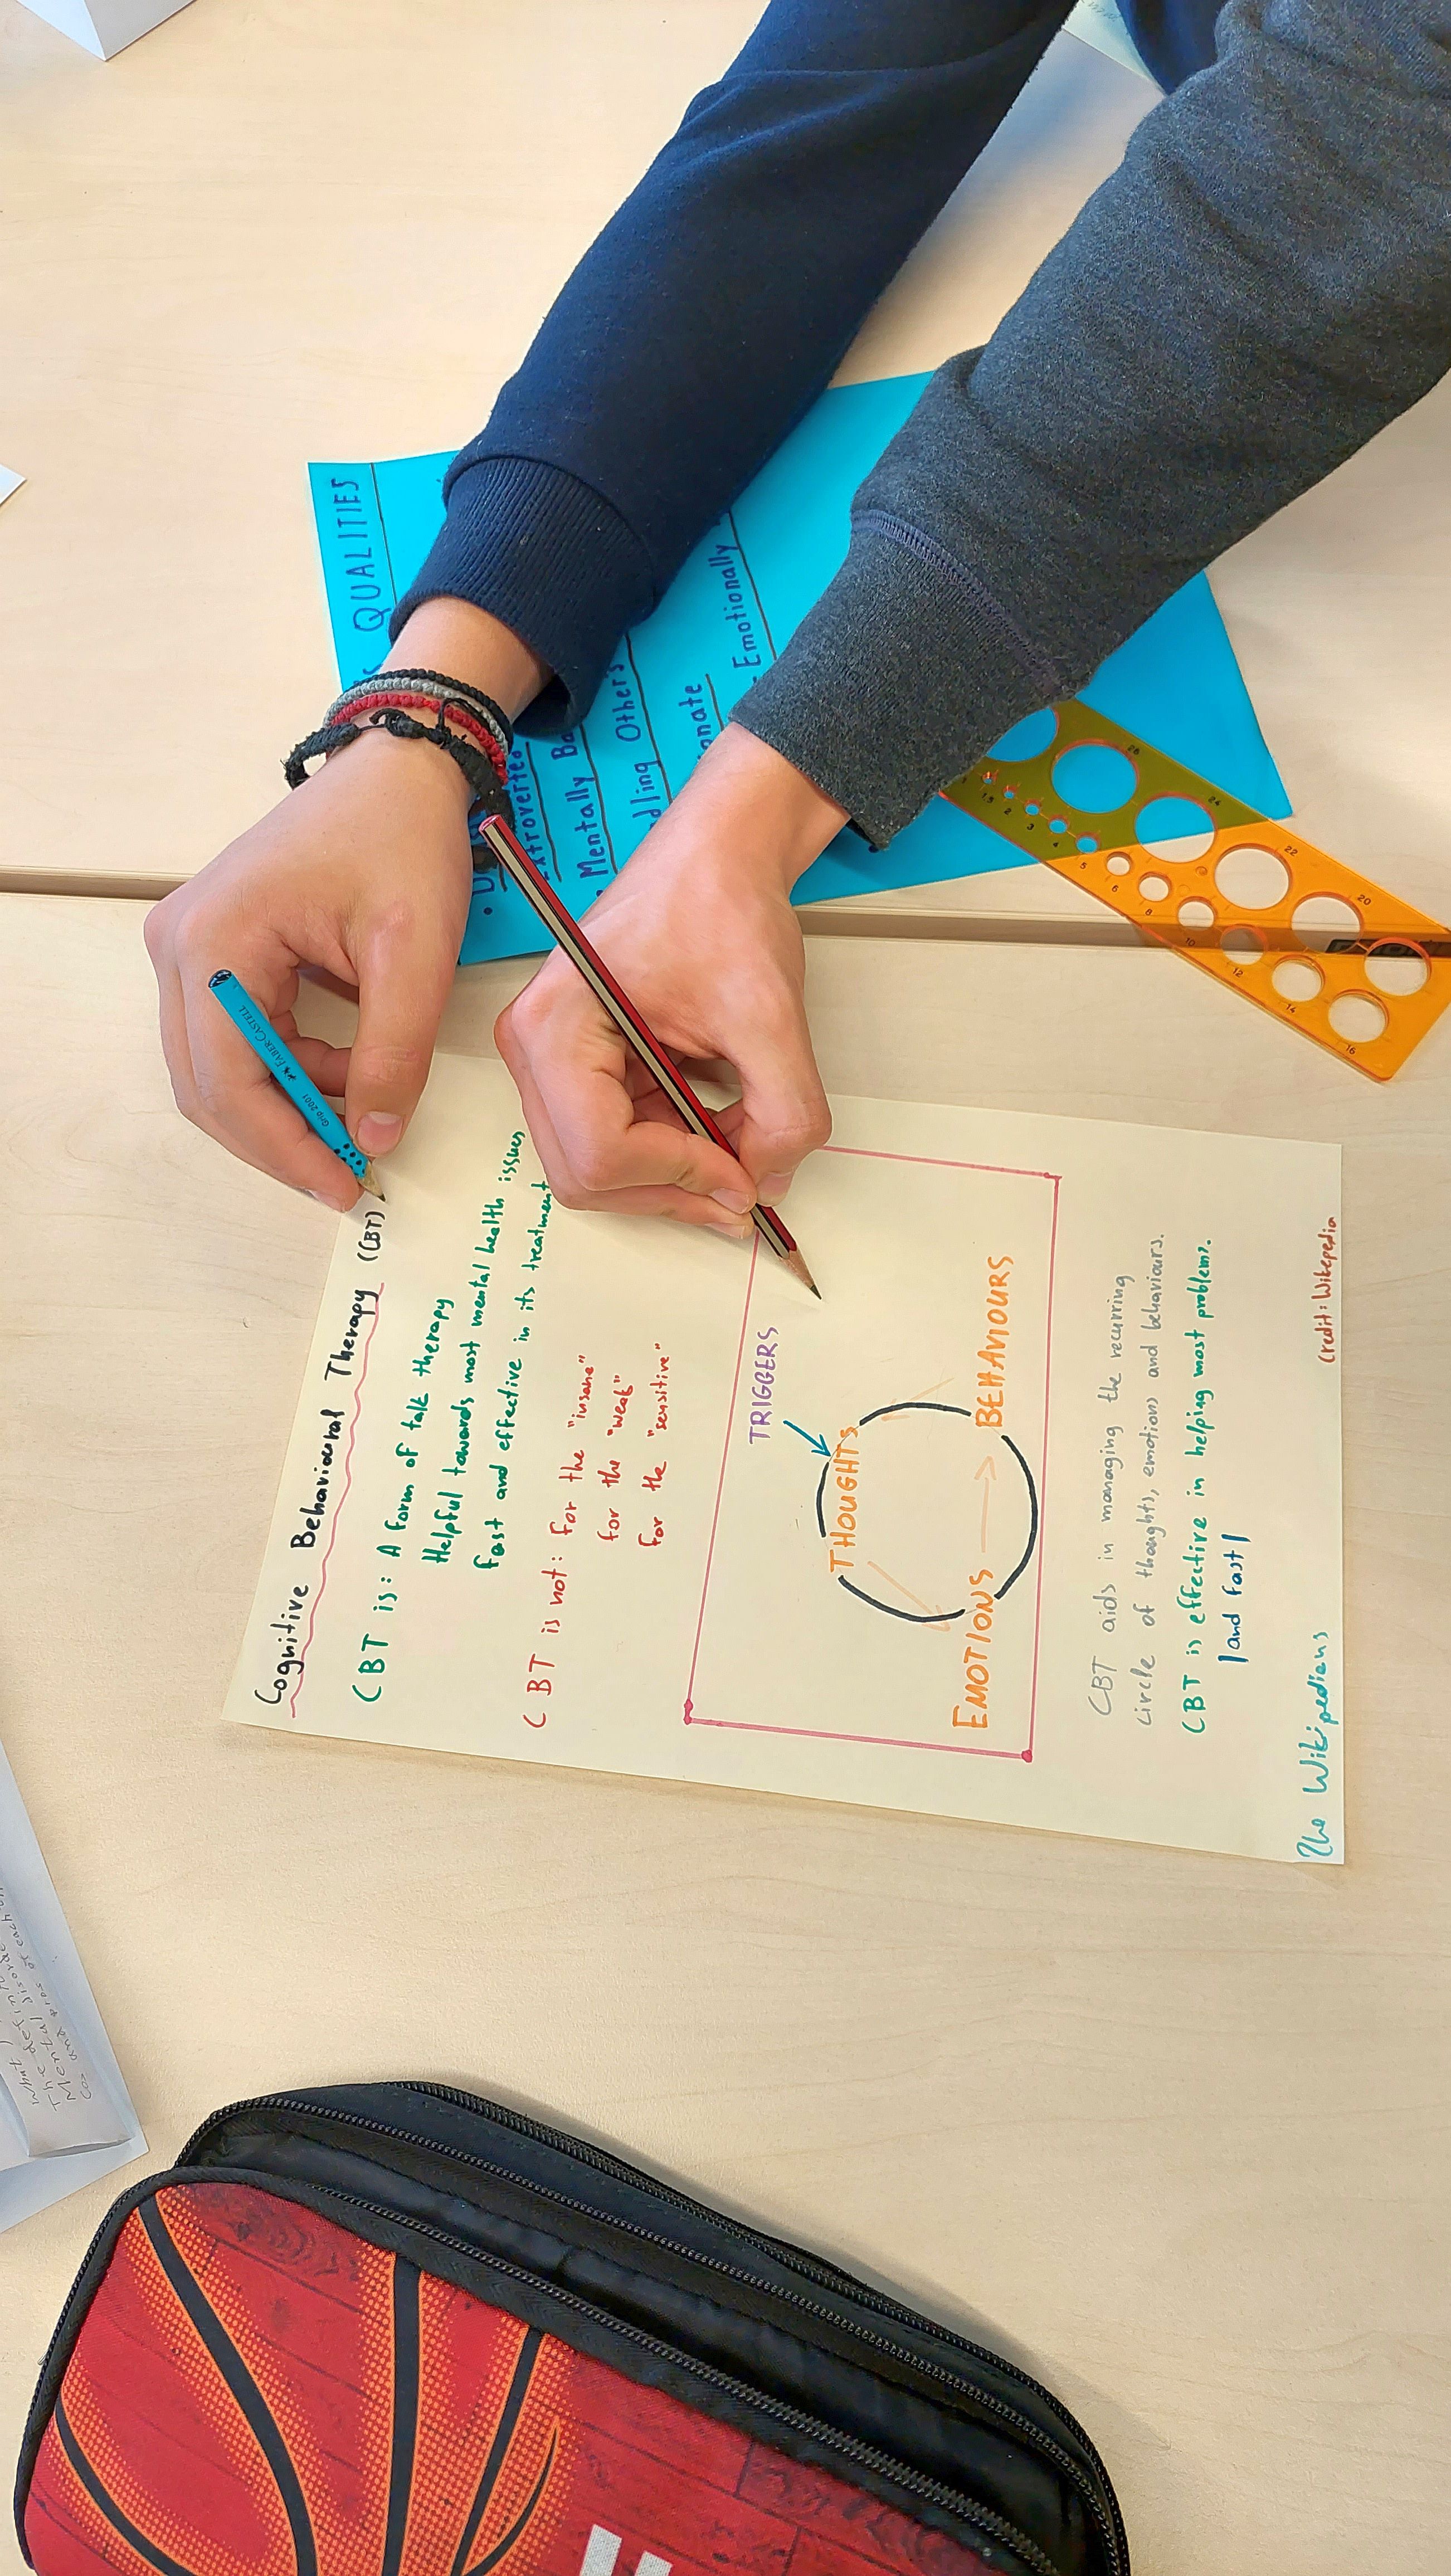 Cognitive Behavioural Therapy (CBT)
CBT is: A form of talk therapy
Helpful towards most mental health issues
fast and effective in its treatment
CBT is not: for the "insane"
for the "weak"
for the "sensitive"
TRIGGERS
THOUGHTS
EMOTIONS
BEHAVIOURS
CBT aids in managing the recurring
circle of thoughts, emotions and behaviours.
CBT is effective in helping most problems.
(and fast)
The Wikipedians
Credit: Wikepedia
QUALITIES
Mentally
Others
Emotionally
FABER-CASTELL
Grip 2001
1.5
2
3
4
5
6
8
10
12
14
16
20
22
24
26
Mental disorde